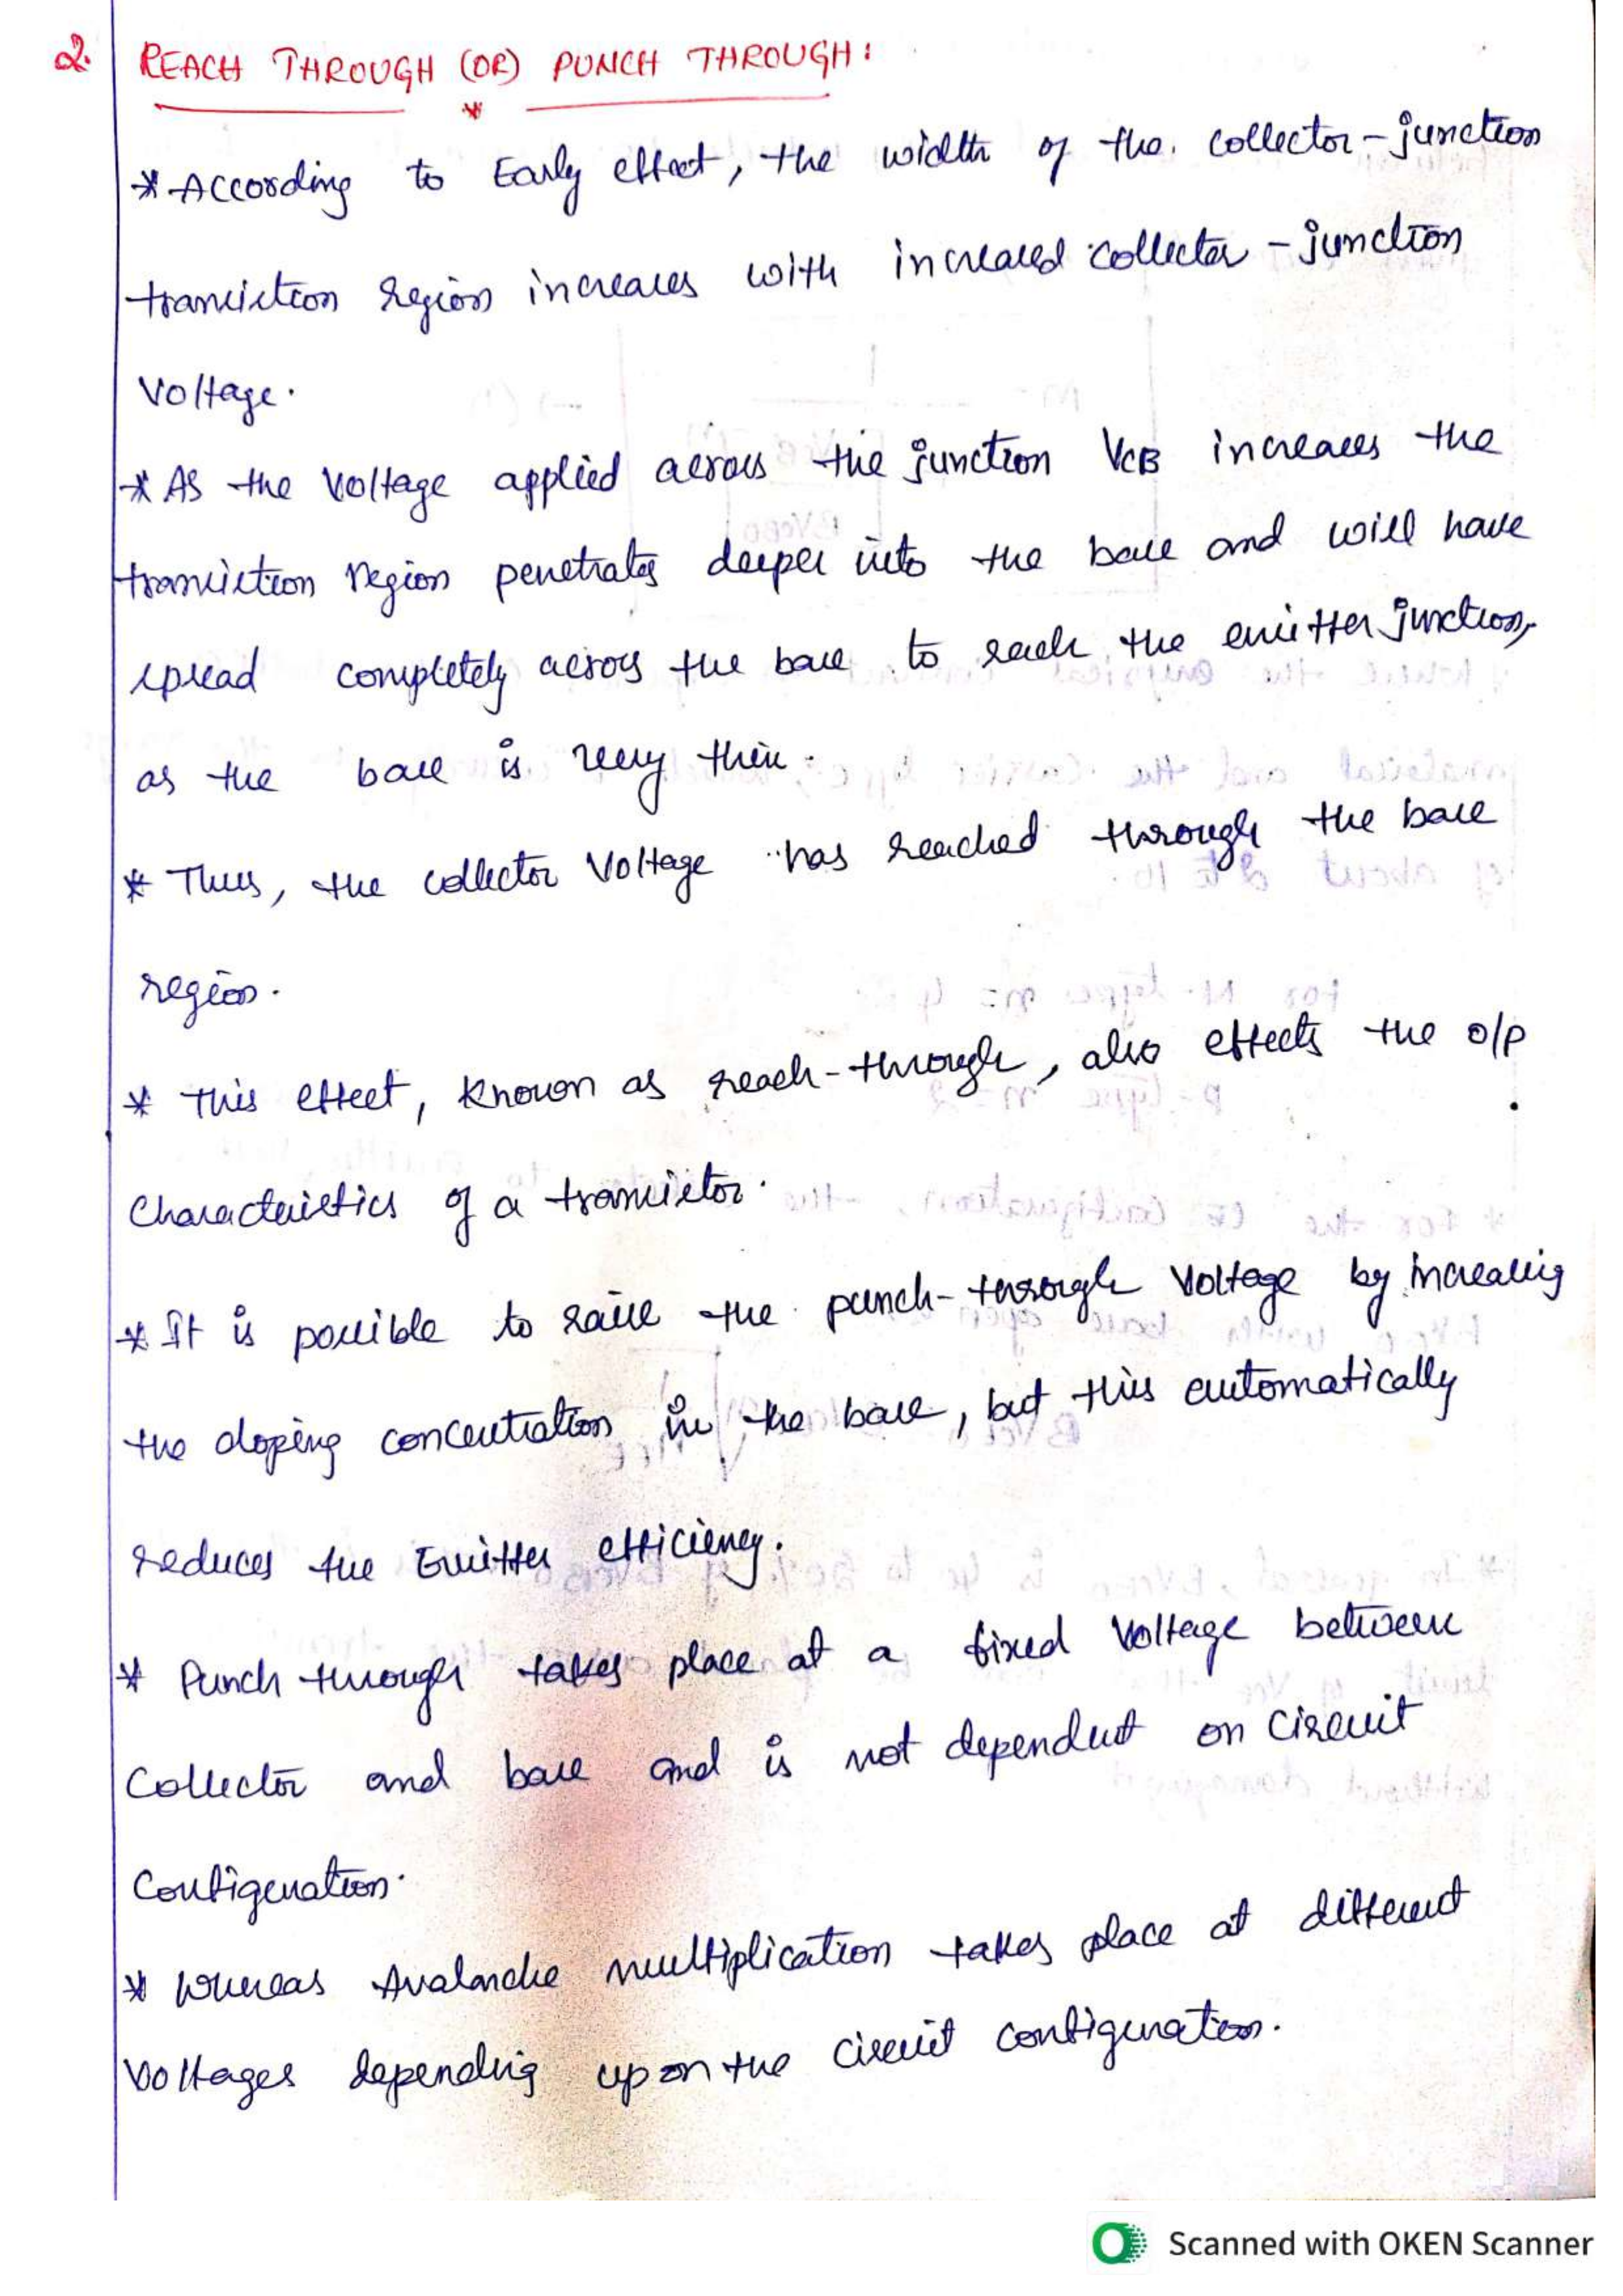 2. REACH THROUGH (OR) PUNCH THROUGH:
* According to Early effect, the width of the collector-junction
transistion region increases with increased collector-junction
Voltage.
* As the Voltage applied across the junction VCB increases the
transistion region penetrates deeper into the base and will have
spread completely across the base to reach the emitter junction,
as the base is very thin.
* Thus, the collector Voltage has reached through the base
region.
* This effect, known as reach-through, also effects the o/p
Characteristics of a transistor.
* It is possible to raise the punch-through Voltage by increasing
the doping concentration in the base, but this automatically
reduces the Emitter efficiency.
* Punch through takes place at a fixed Voltage between
Collector and base and is not dependent on Circuit
Configuration.
* Whereas Avalanche multiplication takes place at different
Voltages depending upon the circuit configuration.
Scanned with OKEN Scanner